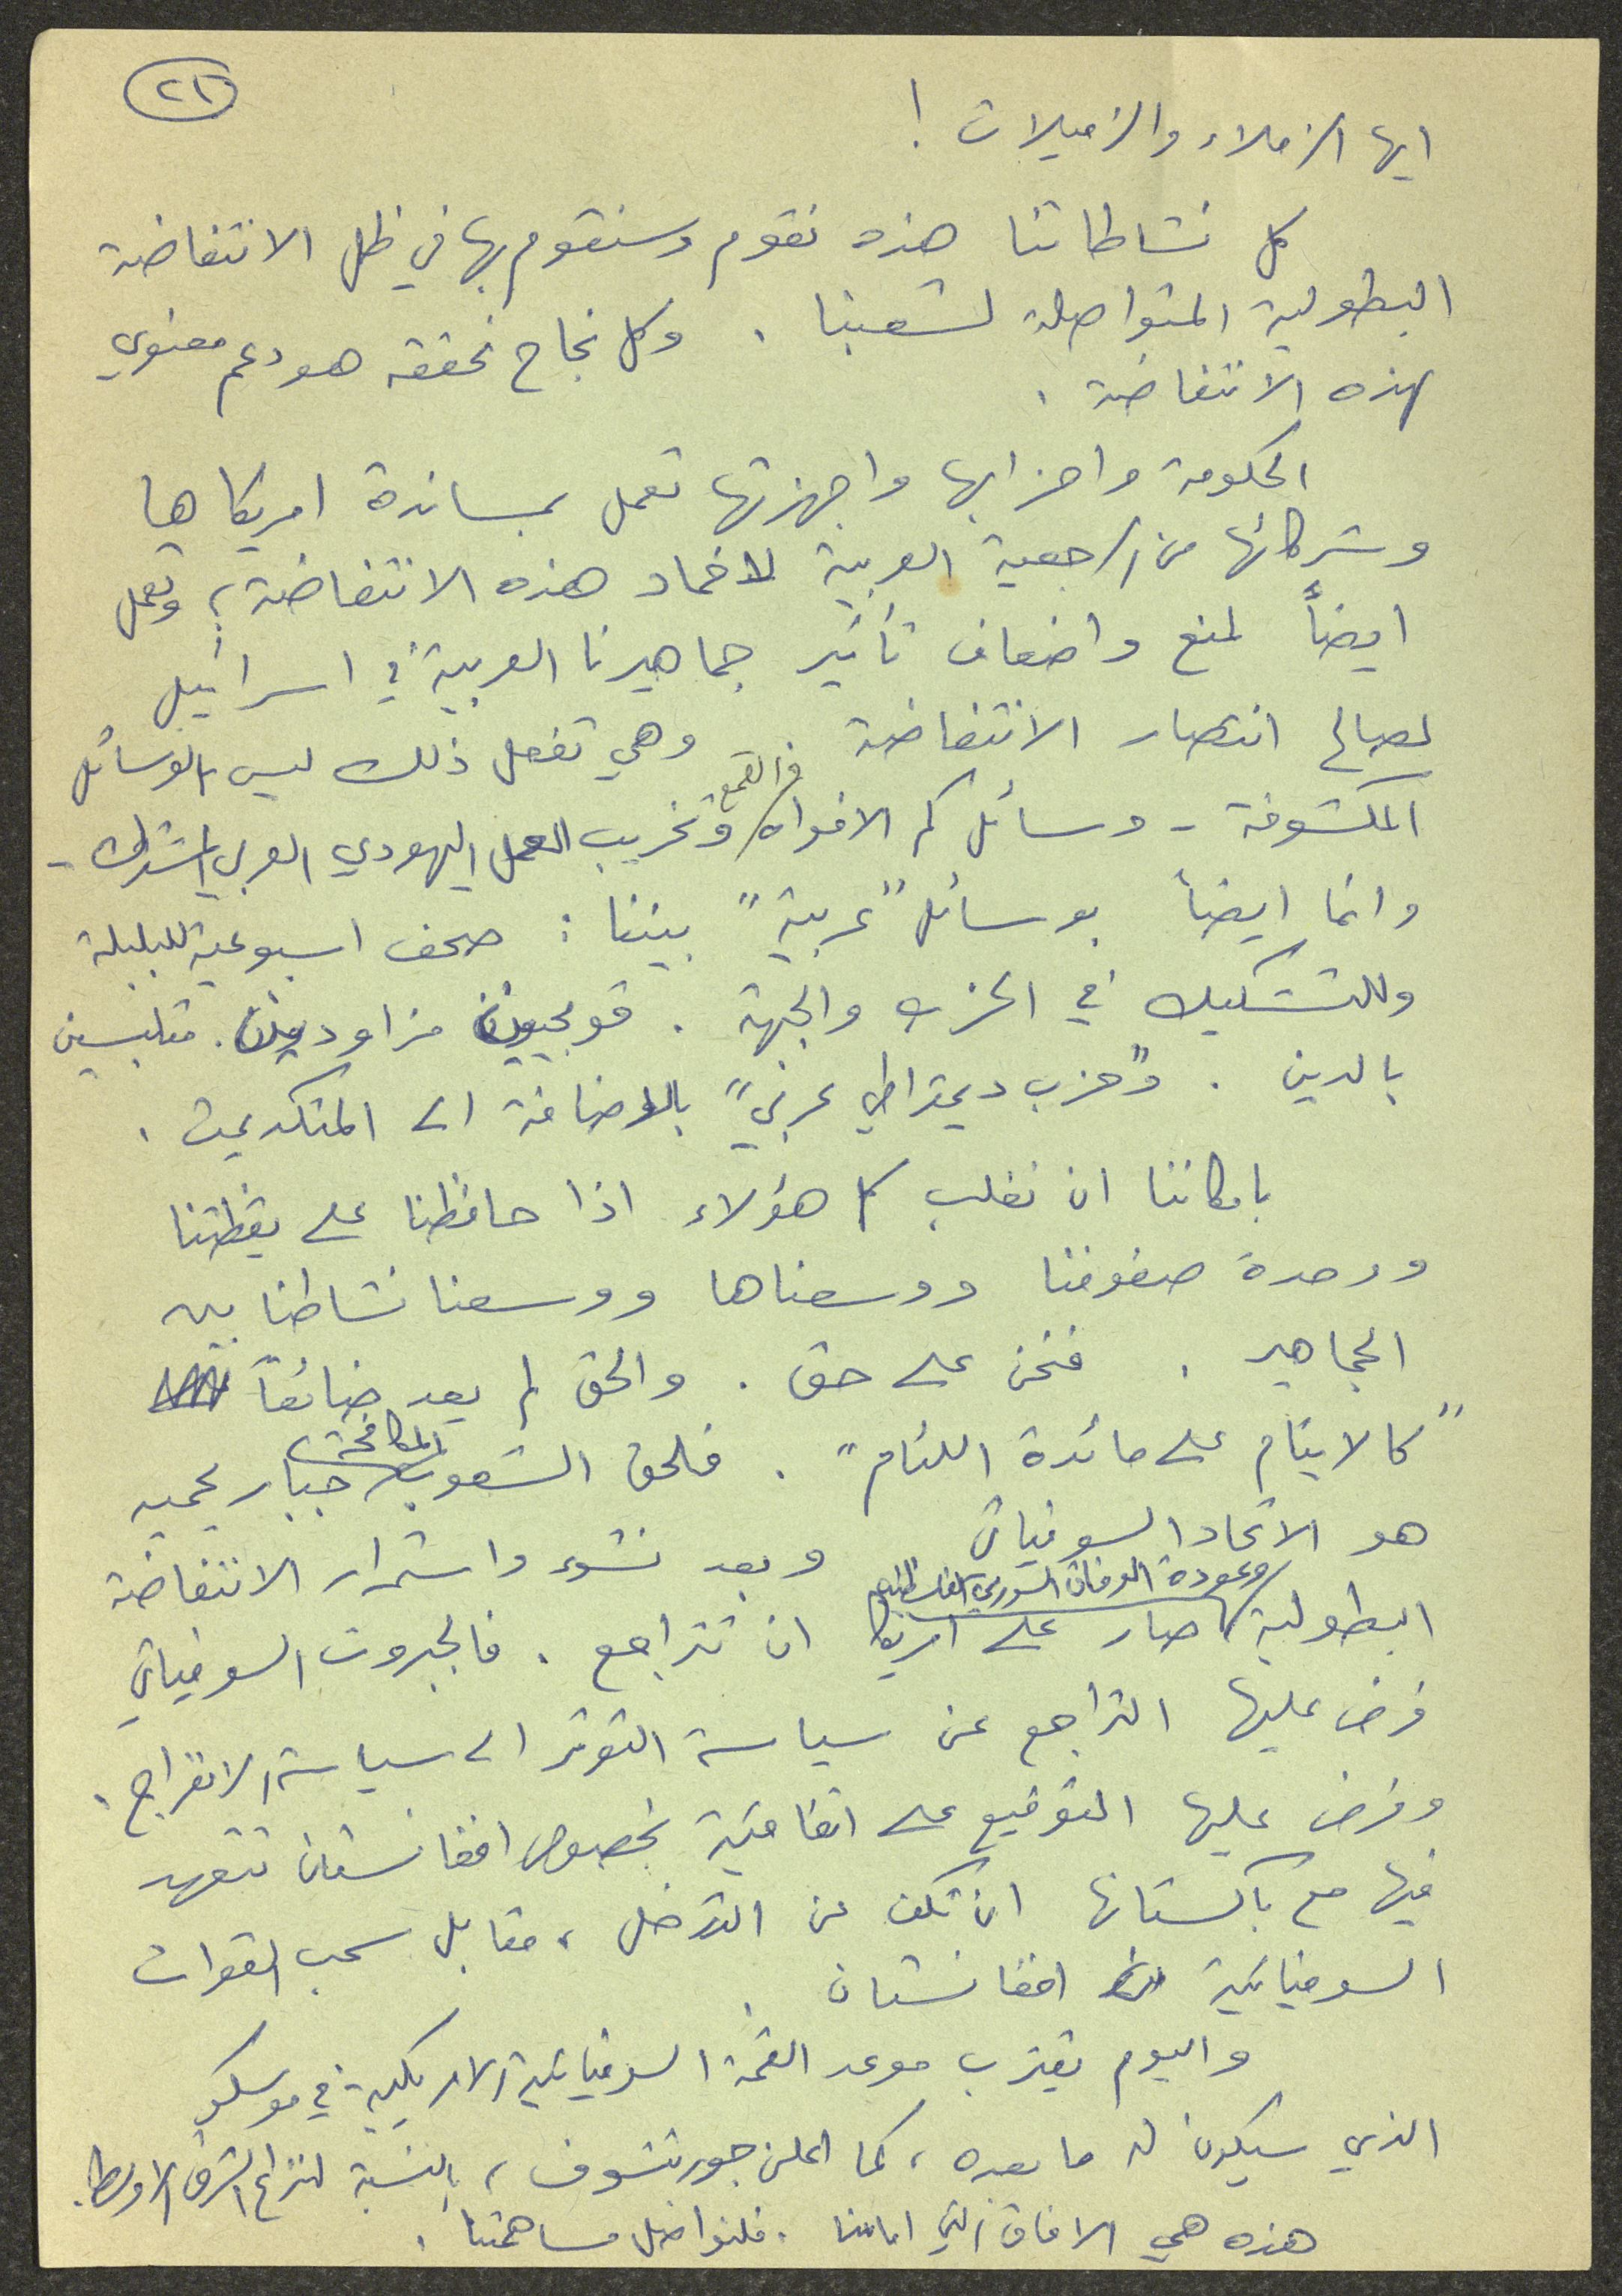 ٢١
ايها الزملاء والزميلات !
كل نشاطاتنا هذه نقوم وسنقوم بها في ظل الانتفاضة
البطولية المتواصلة لشعبنا . وكل نجاح نحققه هو دعم معنوي
لهذه الانتفاضة .
الحكومة واحزابها واجهزتها تعمل بمساندة امريكاها
وشركائها من الرجعية العربية لاخماد هذه الانتفاضة ، وتعمل
ايضاً لمنع واضعاف تأثير جماهيرنا العربية في اسرائيل
لصالح انتصار الانتفاضة . وهي تفعل ذلك ليس بالوسائل
المكشوفة - وسائل كم الافواه والقمع وتخريب العمل اليهودي العربي المشترك -
وانما ايضاً بوسائل "عربية" بيننا : صحف اسبوعية للبلبلة
وللتشكيك في الحزب والجبهة . قومجيين مزاودين . متلبسين
بالدين . و"حزب ديمقراطي عربي" بالاضافة الى المتكدعيت .
بامكاننا ان نغلب كل هؤلاء اذا حافظنا على يقظتنا
ووحدة صفوفنا ووسعناها ووسعنا نشاطنا بين
الجماهير . فنحن على حق . والحق لم يعد ضائعاً
"كالايتام على مائدة اللئام" . فلحق الشعوب المكافحة جبار يحميه
هو الاتحاد السوفياتي وبعد نشوء واستمرار الانتفاضة
البطولية وعودة الوفاق السوري الفلسطيني صار على امريكا ان تتراجع . فالجبروت السوفياتي
فرض عليها التراجع عن سياسة التوتر الى سياسة الانفراج .
وفرض عليها التوقيع على اتفاقية بخصوص افغانستان تتعهد
فيها مع باكستانها ان تكف عن التدخل ، مقابل سحب القوات
السوفياتية من افغانستان .
واليوم يقترب موعد القمة السوفياتية الامريكية في موسكو
الذي سيكون له ما بعده ، كما اعلن جورباتشوف ، بالنسبة لنزاع الشرق الاوسط .
هذه هي الافاق التي امامنا . فلنواصل مساهمتنا .